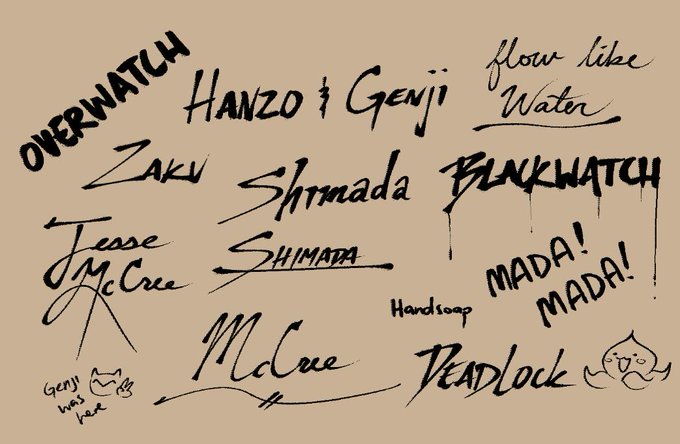 OVERWATCH
HANZO & GENJI
flow like
Water
ZAKU
Shimada
BLACKWATCH
Jesse
McCree
SHIMADA
MADA!
MADA!
Handsoap
McCree
DEADLOCK
Genji
was
here